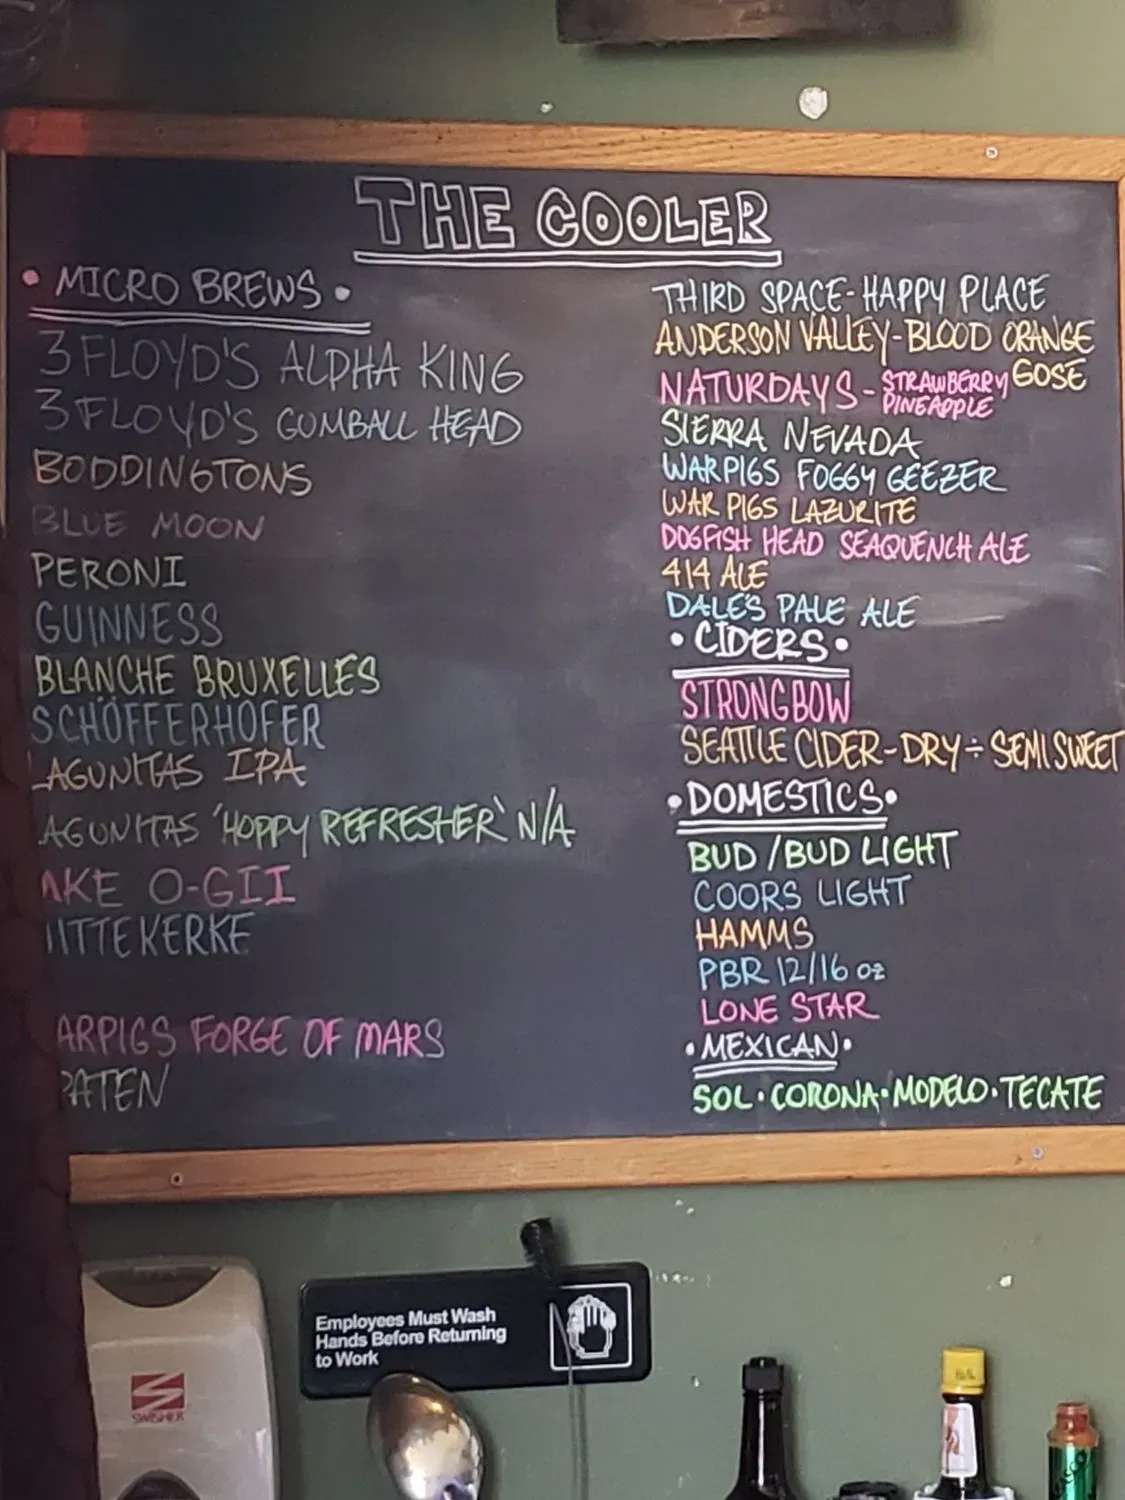 THE COOLER
• MICRO BREWS •
3 FLOYD'S ALPHA KING
3 FLOYD'S GUMBALL HEAD
BODDINGTONS
BLUE MOON
PERONI
GUINNESS
BLANCHE BRUXELLES
SCHÖFFERHOFER
LAGUNITAS IPA
AGUNITAS 'HOPPY REFRESHER' N/A
AKE O-GII
ITTEKERKE
ARPIGS FORGE OF MARS
PATEN
THIRD SPACE - HAPPY PLACE
ANDERSON VALLEY - BLOOD ORANGE
GOSE
NATURDAYS - STRAWBERRY
PINEAPPLE
SIERRA NEVADA
WARPIGS FOGGY GEEZER
WAR PIGS LAZURITE
DOGFISH HEAD SEAQUENCH ALE
414 ALE
DALE'S PALE ALE
• CIDERS •
STRONGBOW
SEATTLE CIDER - DRY ÷ SEMI SWEET
• DOMESTICS •
BUD / BUD LIGHT
COORS LIGHT
HAMMS
PBR 12/16 oz
LONE STAR
• MEXICAN •
SOL • CORONA • MODELO • TECATE
Employees Must Wash
Hands Before Returning
to Work
SWISHER